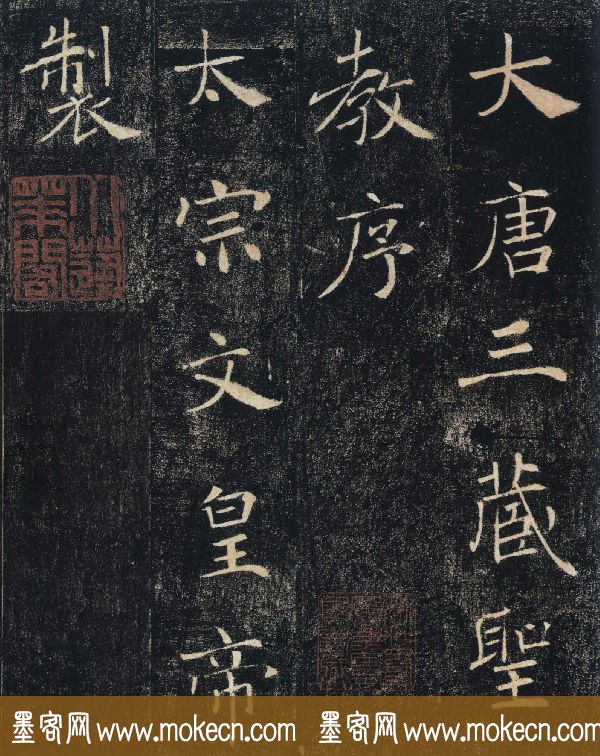 大唐三藏聖
教序
太宗文皇帝
製
墨客网 www.mokecn.com 墨客网 www.mokecn.com